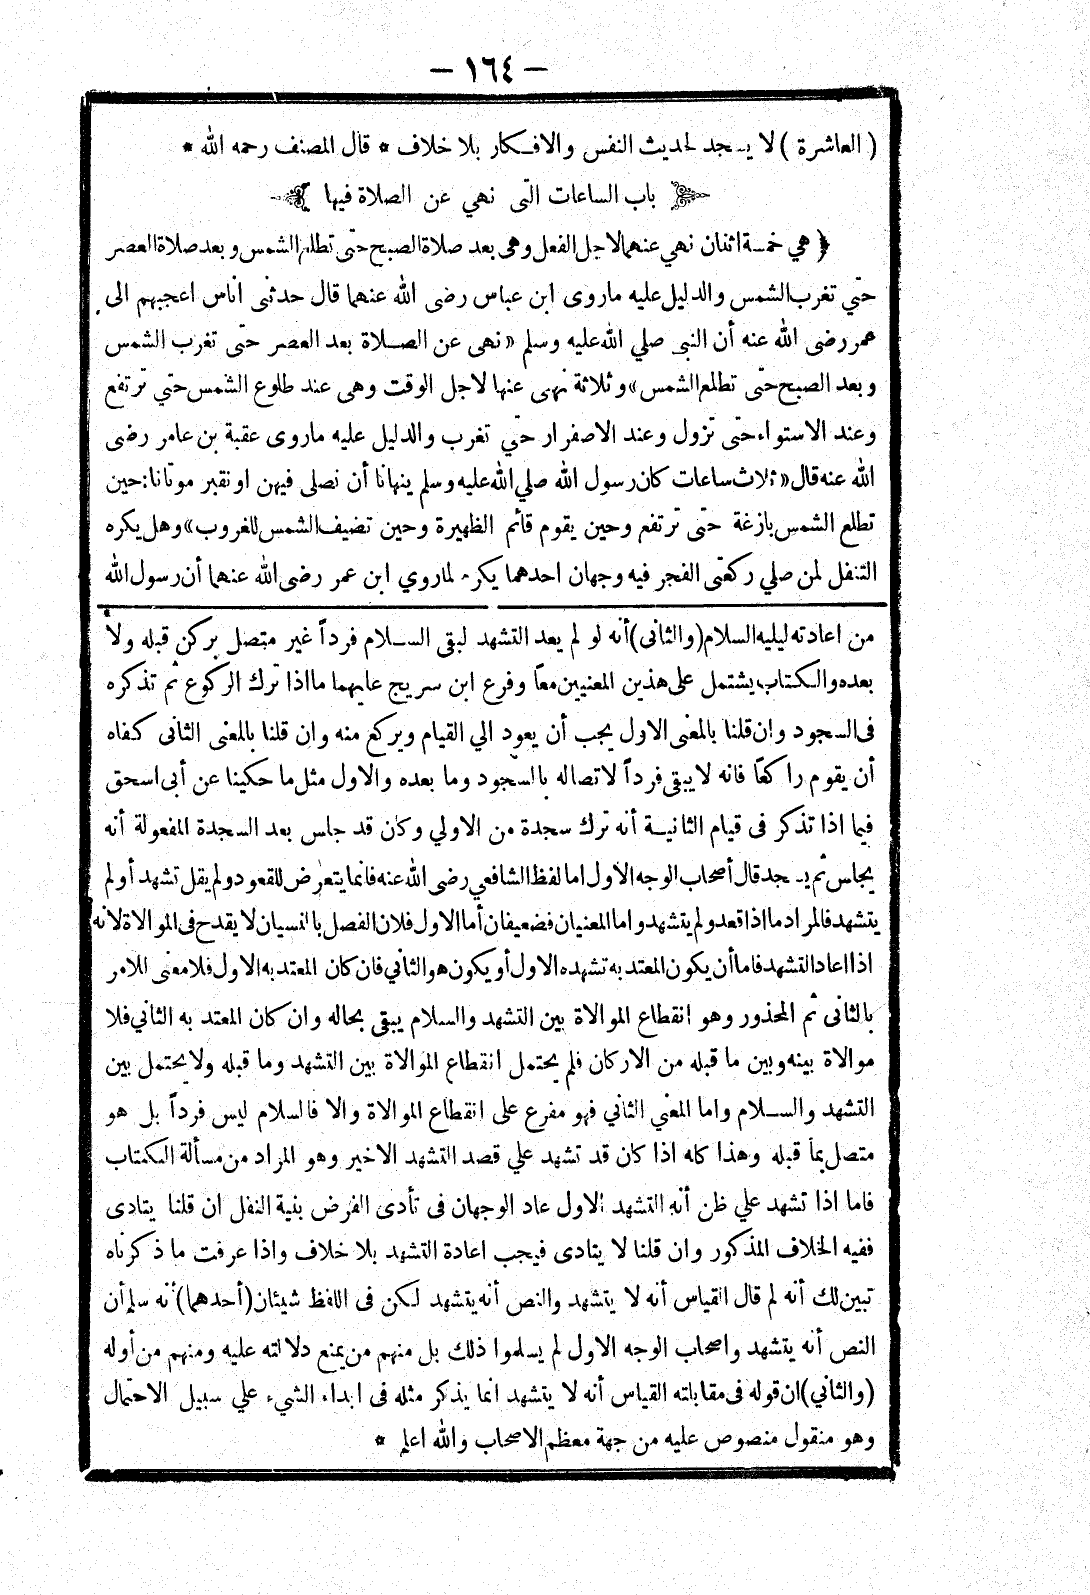 — ١٦٤ —
( العاشرة ) لا يسجد لحديث النفس والافكار بلا خلاف * قال المصنف رحمه الله *
باب الساعات التى نهي عن الصلاة فيها
﴿ هي خمسة اثنان نهي عنهما لاجل الفعل وهى بعد صلاة الصبح حتى تطلع الشمس وبعد صلاة العصر
حتى تغرب الشمس والدليل عليه ماروى ابن عباس رضى الله عنهما قال حدثنى اناس اعجبهم الى
عمر رضى الله عنه أن النبى صلي الله عليه وسلم « نهى عن الصلاة بعد العصر حتى تغرب الشمس
وبعد الصبح حتى تطلع الشمس » وثلاثة نهى عنها لاجل الوقت وهى عند طلوع الشمس حتي ترتفع
وعند الاستواء حتى تزول وعند الاصفرار حتى تغرب والدليل عليه ماروى عقبة بن عامر رضى
الله عنه قال « ثلاث ساعات كان رسول الله صلي الله عليه وسلم ينهانا أن نصلى فيهن او نقبر موتانا : حين
تطلع الشمس بازغة حتى ترتفع وحين يقوم قائم الظهيرة وحين تضيف الشمس للغروب » وهل يكره
التنفل لمن صلي ركعتى الفجر فيه وجهان احدهما يكره لماروي ابن عمر رضى الله عنهما أن رسول الله
من اعادته ليليه السلام (والثانى) أنه لو لم يعد التشهد لبقى السلام فرداً غير متصل بركن قبله ولا
بعده والكتاب يشتمل على هذين المعنيين معاً وفرع ابن سريج عليهما ما اذا ترك الركوع ثم تذكره
فى السجود وان قلنا بالمعنى الاول يجب أن يعود الي القيام ويركع منه وان قلنا بالمعنى الثانى كفاه
أن يقوم راكعاً فانه لا يبقى فرداً لاتصاله بالسجود وما بعده والاول مثل ما حكينا عن أبى اسحق
فيما اذا تذكر فى قيام الثانية أنه ترك سجدة من الاولي وكان قد جلس بعد السجدة المفعولة أنه
يجلس ثم يسجد قال أصحاب الوجه الاول اما لفظ الشافعي رضى الله عنه فانما يتعرض للقعود ولم يقل تشهد أولم
يتشهد فالمراد ما اذا قعد ولم يتشهد واما المعنيان فضعيفان أما الاول فلان الفصل بالنسيان لا يقدح فى الموالاة لانه
اذا اعاد التشهد فاما أن يكون المعتد به تشهده الاول أو يكون هو الثاني فان كان المعتد به الاول فلا معنى للامر
بالثانى ثم المحذور وهو انقطاع الموالاة بين التشهد والسلام يبقى بحاله وان كان المعتد به الثاني فلا
موالاة بينه وبين ما قبله من الاركان فلم يحتمل انقطاع الموالاة بين التشهد وما قبله ولا يحتمل بين
التشهد والسلام واما المعني الثاني فهو مفرع على انقطاع الموالاة والا فالسلام ليس فرداً بل هو
متصل بما قبله وهذا كله اذا كان قد تشهد علي قصد التشهد الاخير وهو المراد من مسألة الكتاب
فاما اذا تشهد علي ظن أنه التشهد الاول عاد الوجهان فى تأدى الفرض بنية النفل ان قلنا يتادى
ففيه الخلاف المذكور وان قلنا لا يتادى فيجب اعادة التشهد بلا خلاف واذا عرفت ما ذكرناه
تبين لك أنه لم قال القياس أنه لا يتشهد والنص أنه يتشهد لكن فى اللفظ شيئان (أحدهما) أنه سلم أن
النص أنه يتشهد واصحاب الوجه الاول لم يسلموا ذلك بل منهم من يمنع دلالته عليه ومنهم من أوله
(والثاني) ان قوله فى مقابلته القياس أنه لا يتشهد انما يذكر مثله فى ابداء الشيء علي سبيل الاحتمال
وهو منقول منصوص عليه من جهة معظم الاصحاب والله اعلم *